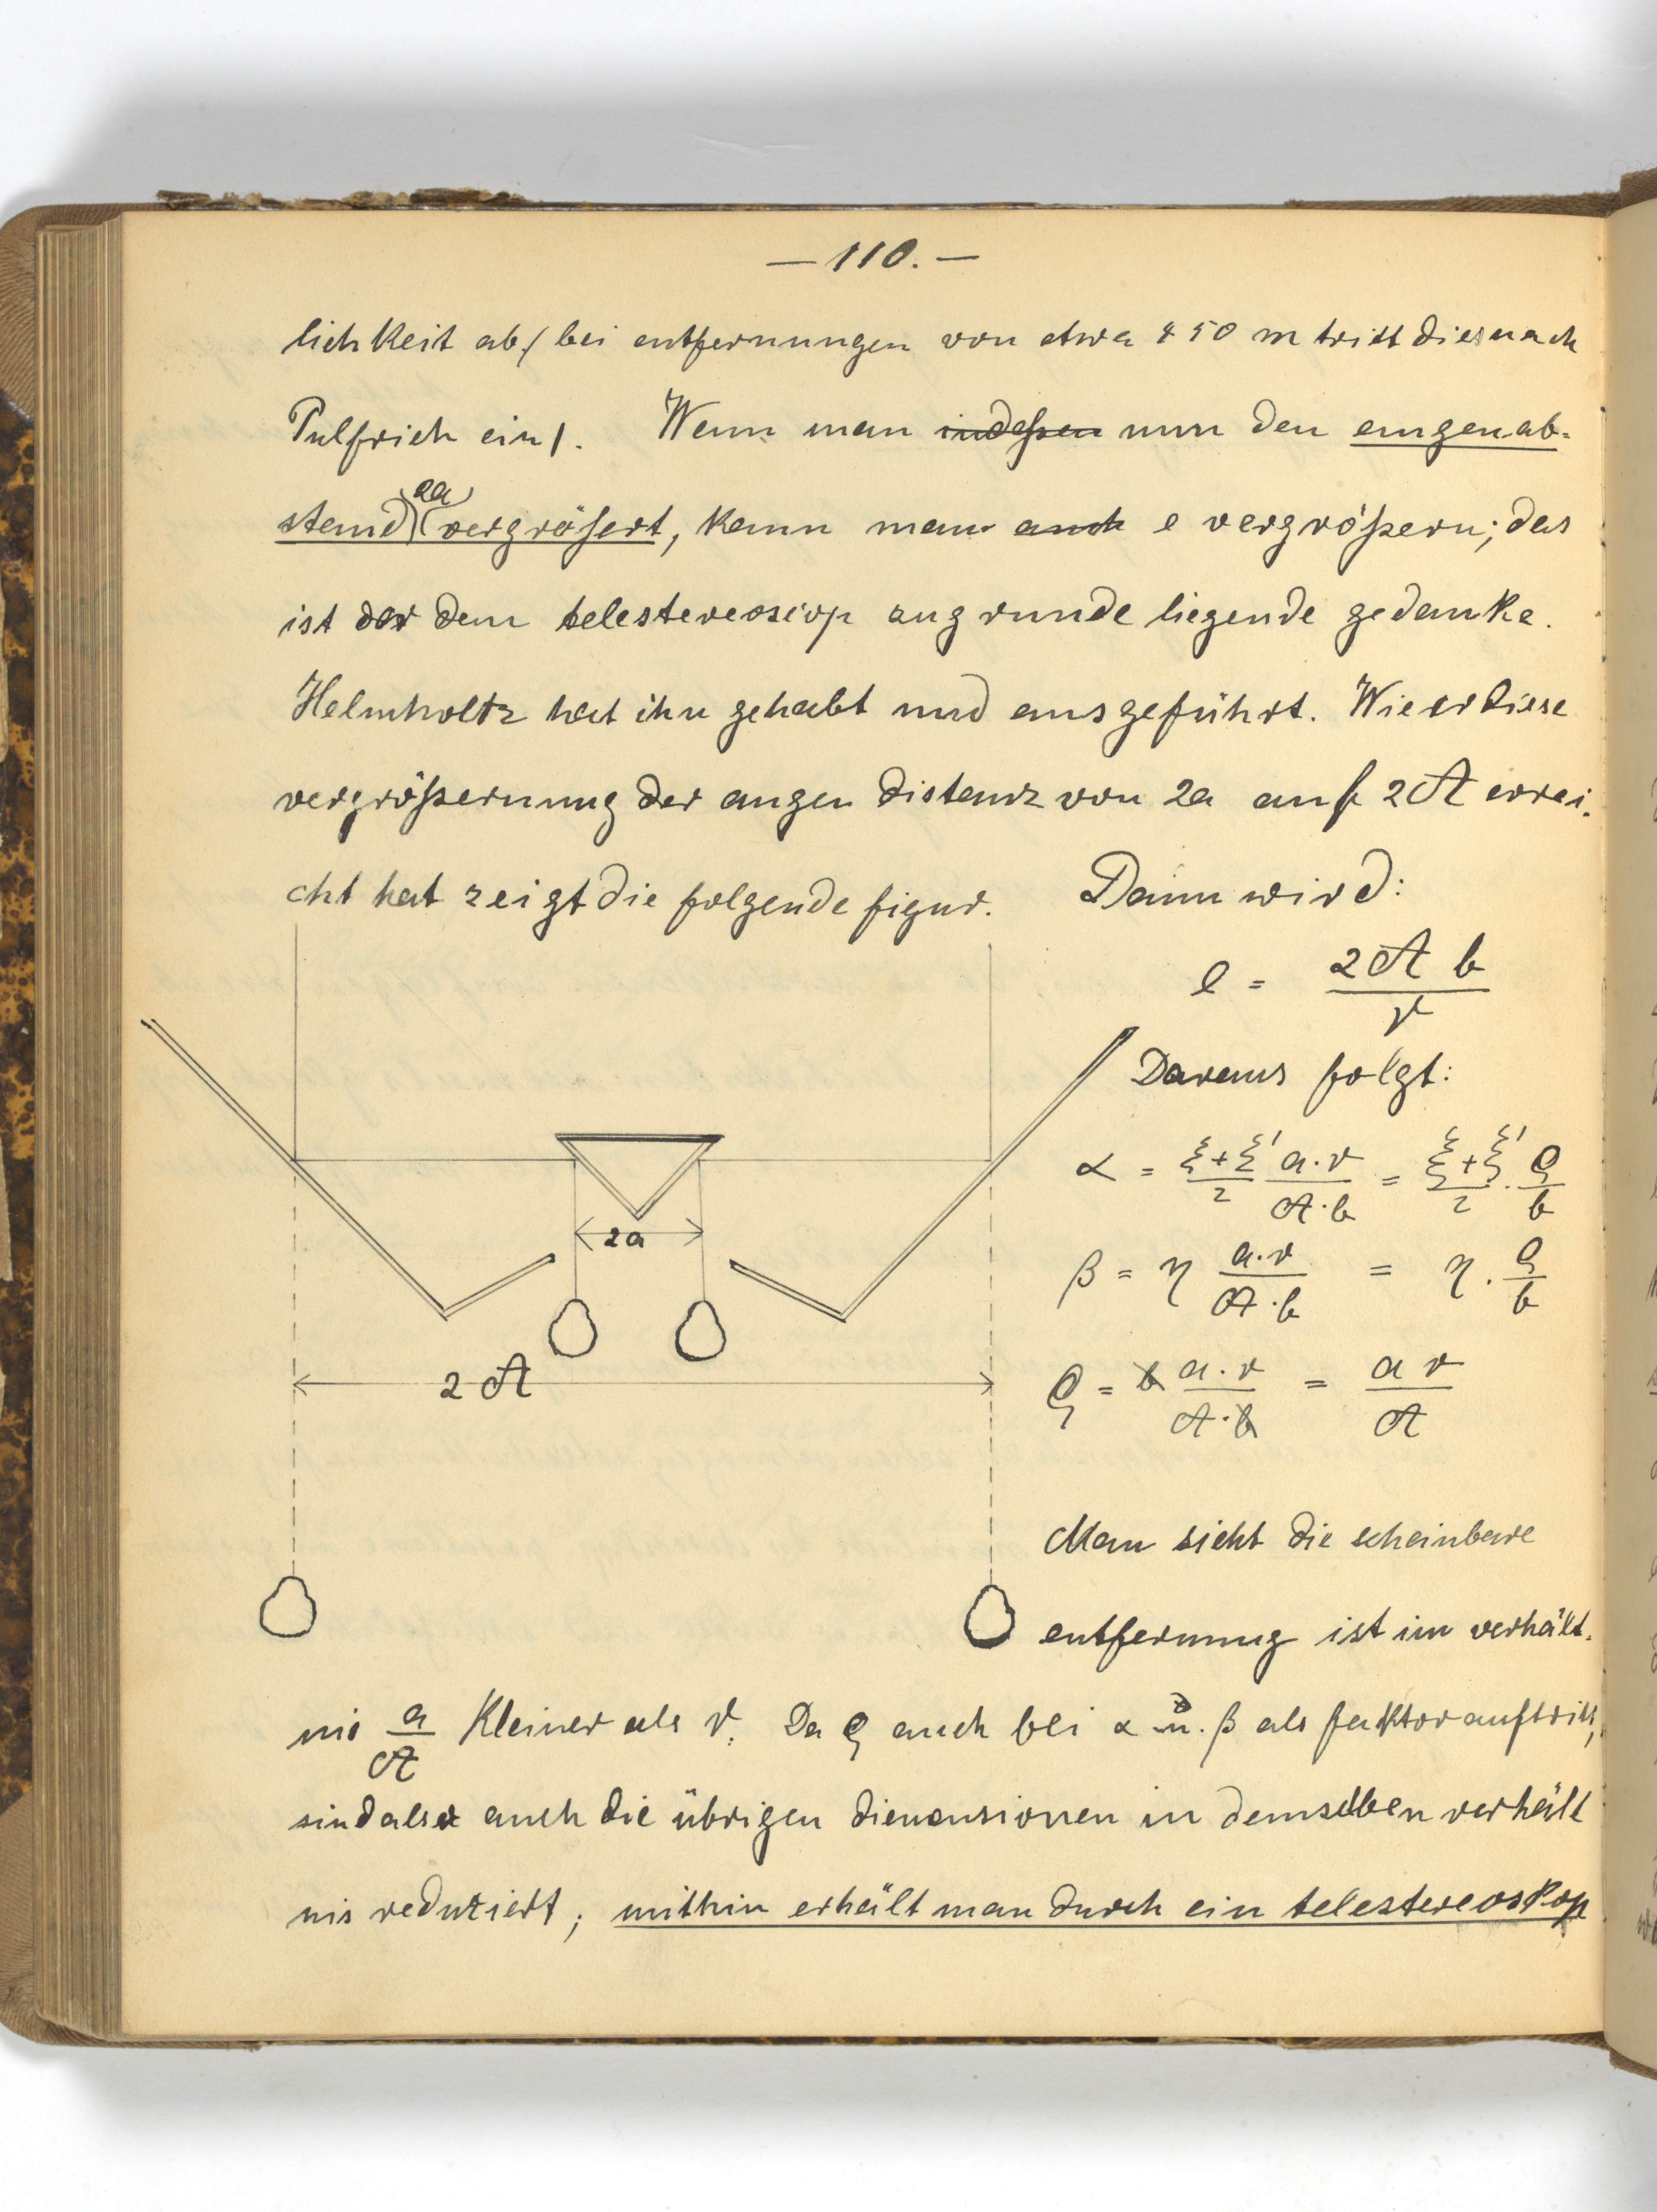 — 110. —
lichkeit ab / bei entfernungen von etwa 450 m tritt dies nach
Pulfrich ein /. Wenn man indessen nun den augenab-
stand (2a) vergrößert, kann man auch e vergrößern; das
ist der dem telestereoscop zugrunde liegende gedanke.
Helmholtz hat ihn gehabt und ausgeführt. Wie er diese
vergrößernung der augen distanz von 2a auf 2A errei-
cht hat zeigt die folgende figur. Dann wird:
e = 2A b / r
Daraus folgt:
α = ξ+ξ'/2 a·r/A·b = ξ+ξ'/2 · ϱ/b
β = η a·r/A·b = η · ϱ/b
ϱ = b a·r/A·b = a r/A
2a
2A
Man sieht die scheinbare
entfernung ist im verhält-
nis a/A kleiner als r. Da ϱ auch bei α u. β als faktor auftritt,
sind also auch die übrigen dimensionen in demselben verhält
nis reduziert; mithin erhält man durch ein telestereoskop